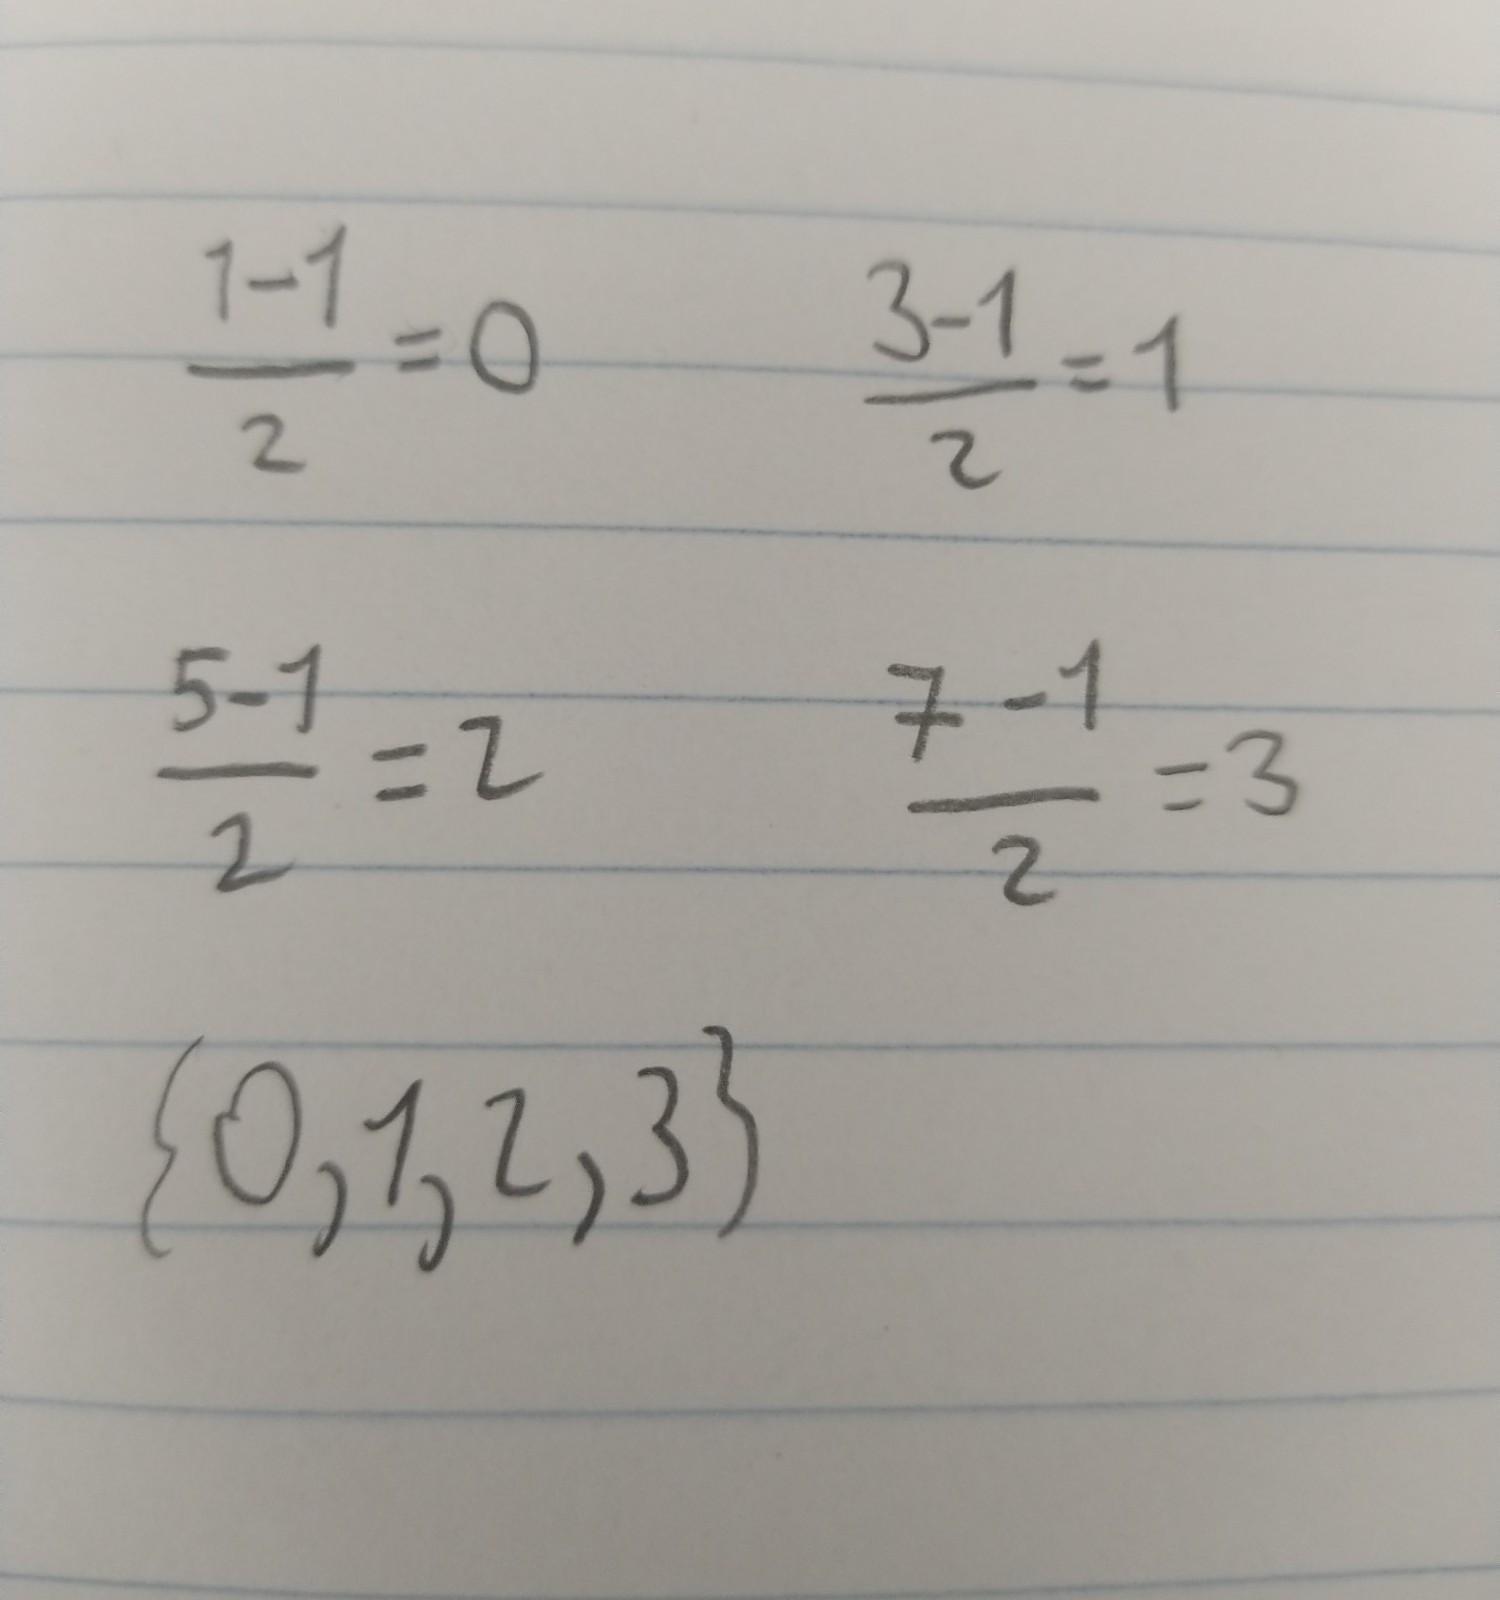 (1-1)/2 = 0    (3-1)/2 = 1
(5-1)/2 = 2    (7-1)/2 = 3
{0,1,2,3}